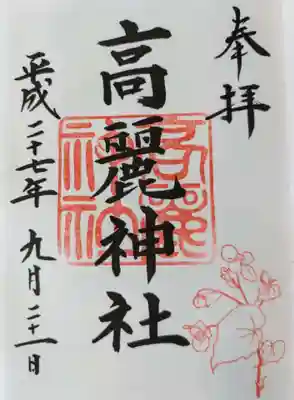 奉拝
高麗神社
平成二十七年九月二十一日